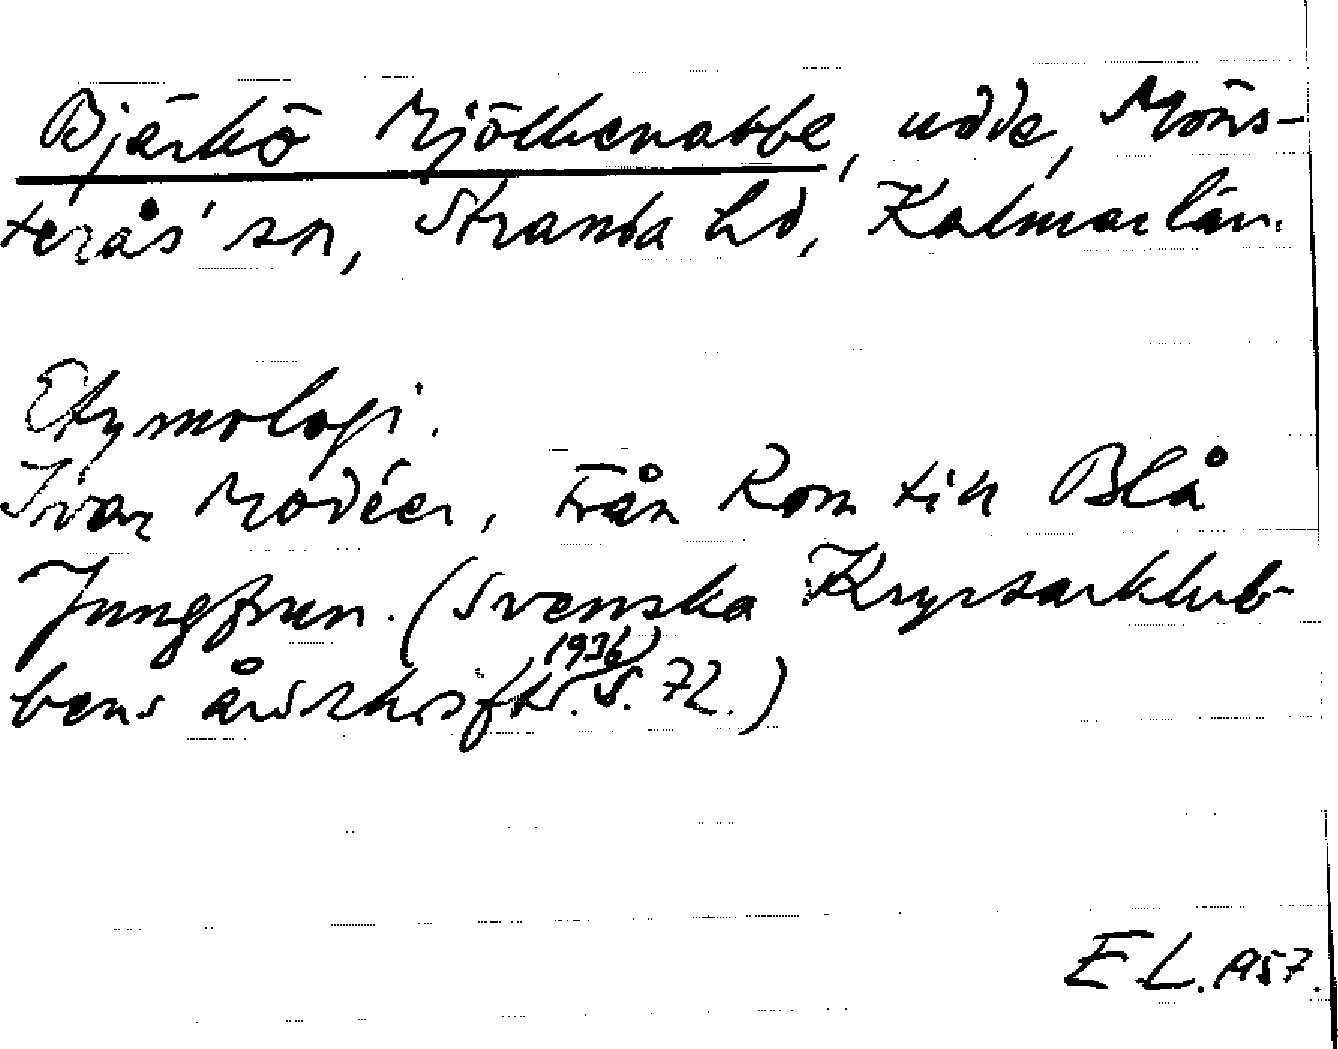 Bjärkö Mjölkenabbe, udde, Möns-
terås' sn, Stranda hd, Kalmar län.
Etymologi.
Ivar Modéer, Från Rom till Blå
Jungfrun. (Svenska Kryssarklub-
bens årsskrift 1936. S. 72.)
E L. 1957.